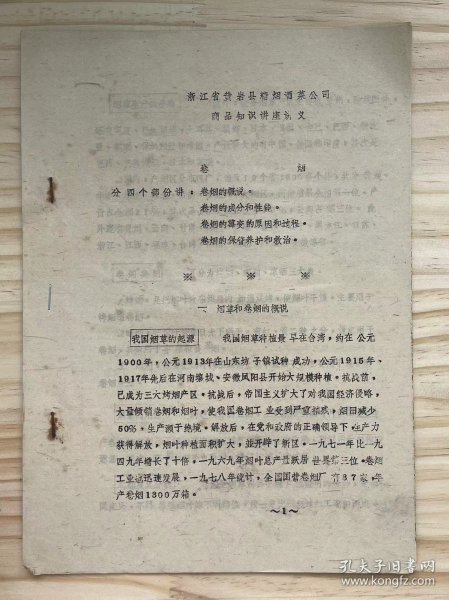 浙江省黄岩县糖烟酒菜公司
商品知识讲座讲义
卷 烟
分四个部份讲：卷烟的概说。
卷烟的成分和性能。
卷烟的霉变的原因和过程。
卷烟的保管养护和救治。
※ ※ ※
一 烟草和卷烟的概说
我国烟草的起源 我国烟草种植最早在台湾，约在公元
1900年，公元1913年在山东坊子镇试种成功，公元1915年、
1917年先后在河南襄城、安徽凤阳县开始大规模种植。抗战前，
已成为三大烤烟产区。抗战后，帝国主义扩大了对我国经济侵略，
大量倾销卷烟和烟叶，使我国卷烟工业受到严重摧残，烟田减少
50%，生产濒于绝境。解放后，在党和政府的正确领导下生产力
获得解放，烟叶种植面积扩大，并开辟了新区。一九七一年比一
九四九年增长了十倍。一九六九年烟叶总产量跃居世界第三位。卷烟
工业也迅速发展，一九七八年统计，全国国营卷烟厂有87家，年
产卷烟1300万箱。
～1～
孔夫子旧书网
www.kongfz.com